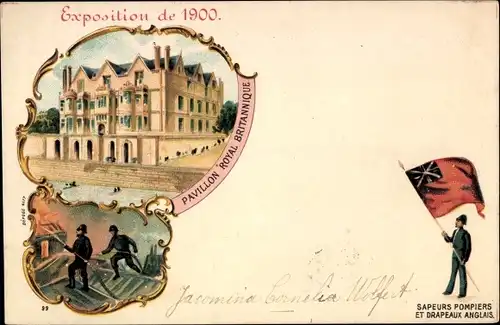 Exposition de 1900.
PAVILLON ROYAL BRITANNIQUE
DÉPOSÉ
39
Jacomina Cornelia Wolfert.
SAPEURS POMPIERS
ET DRAPEAUX ANGLAIS.